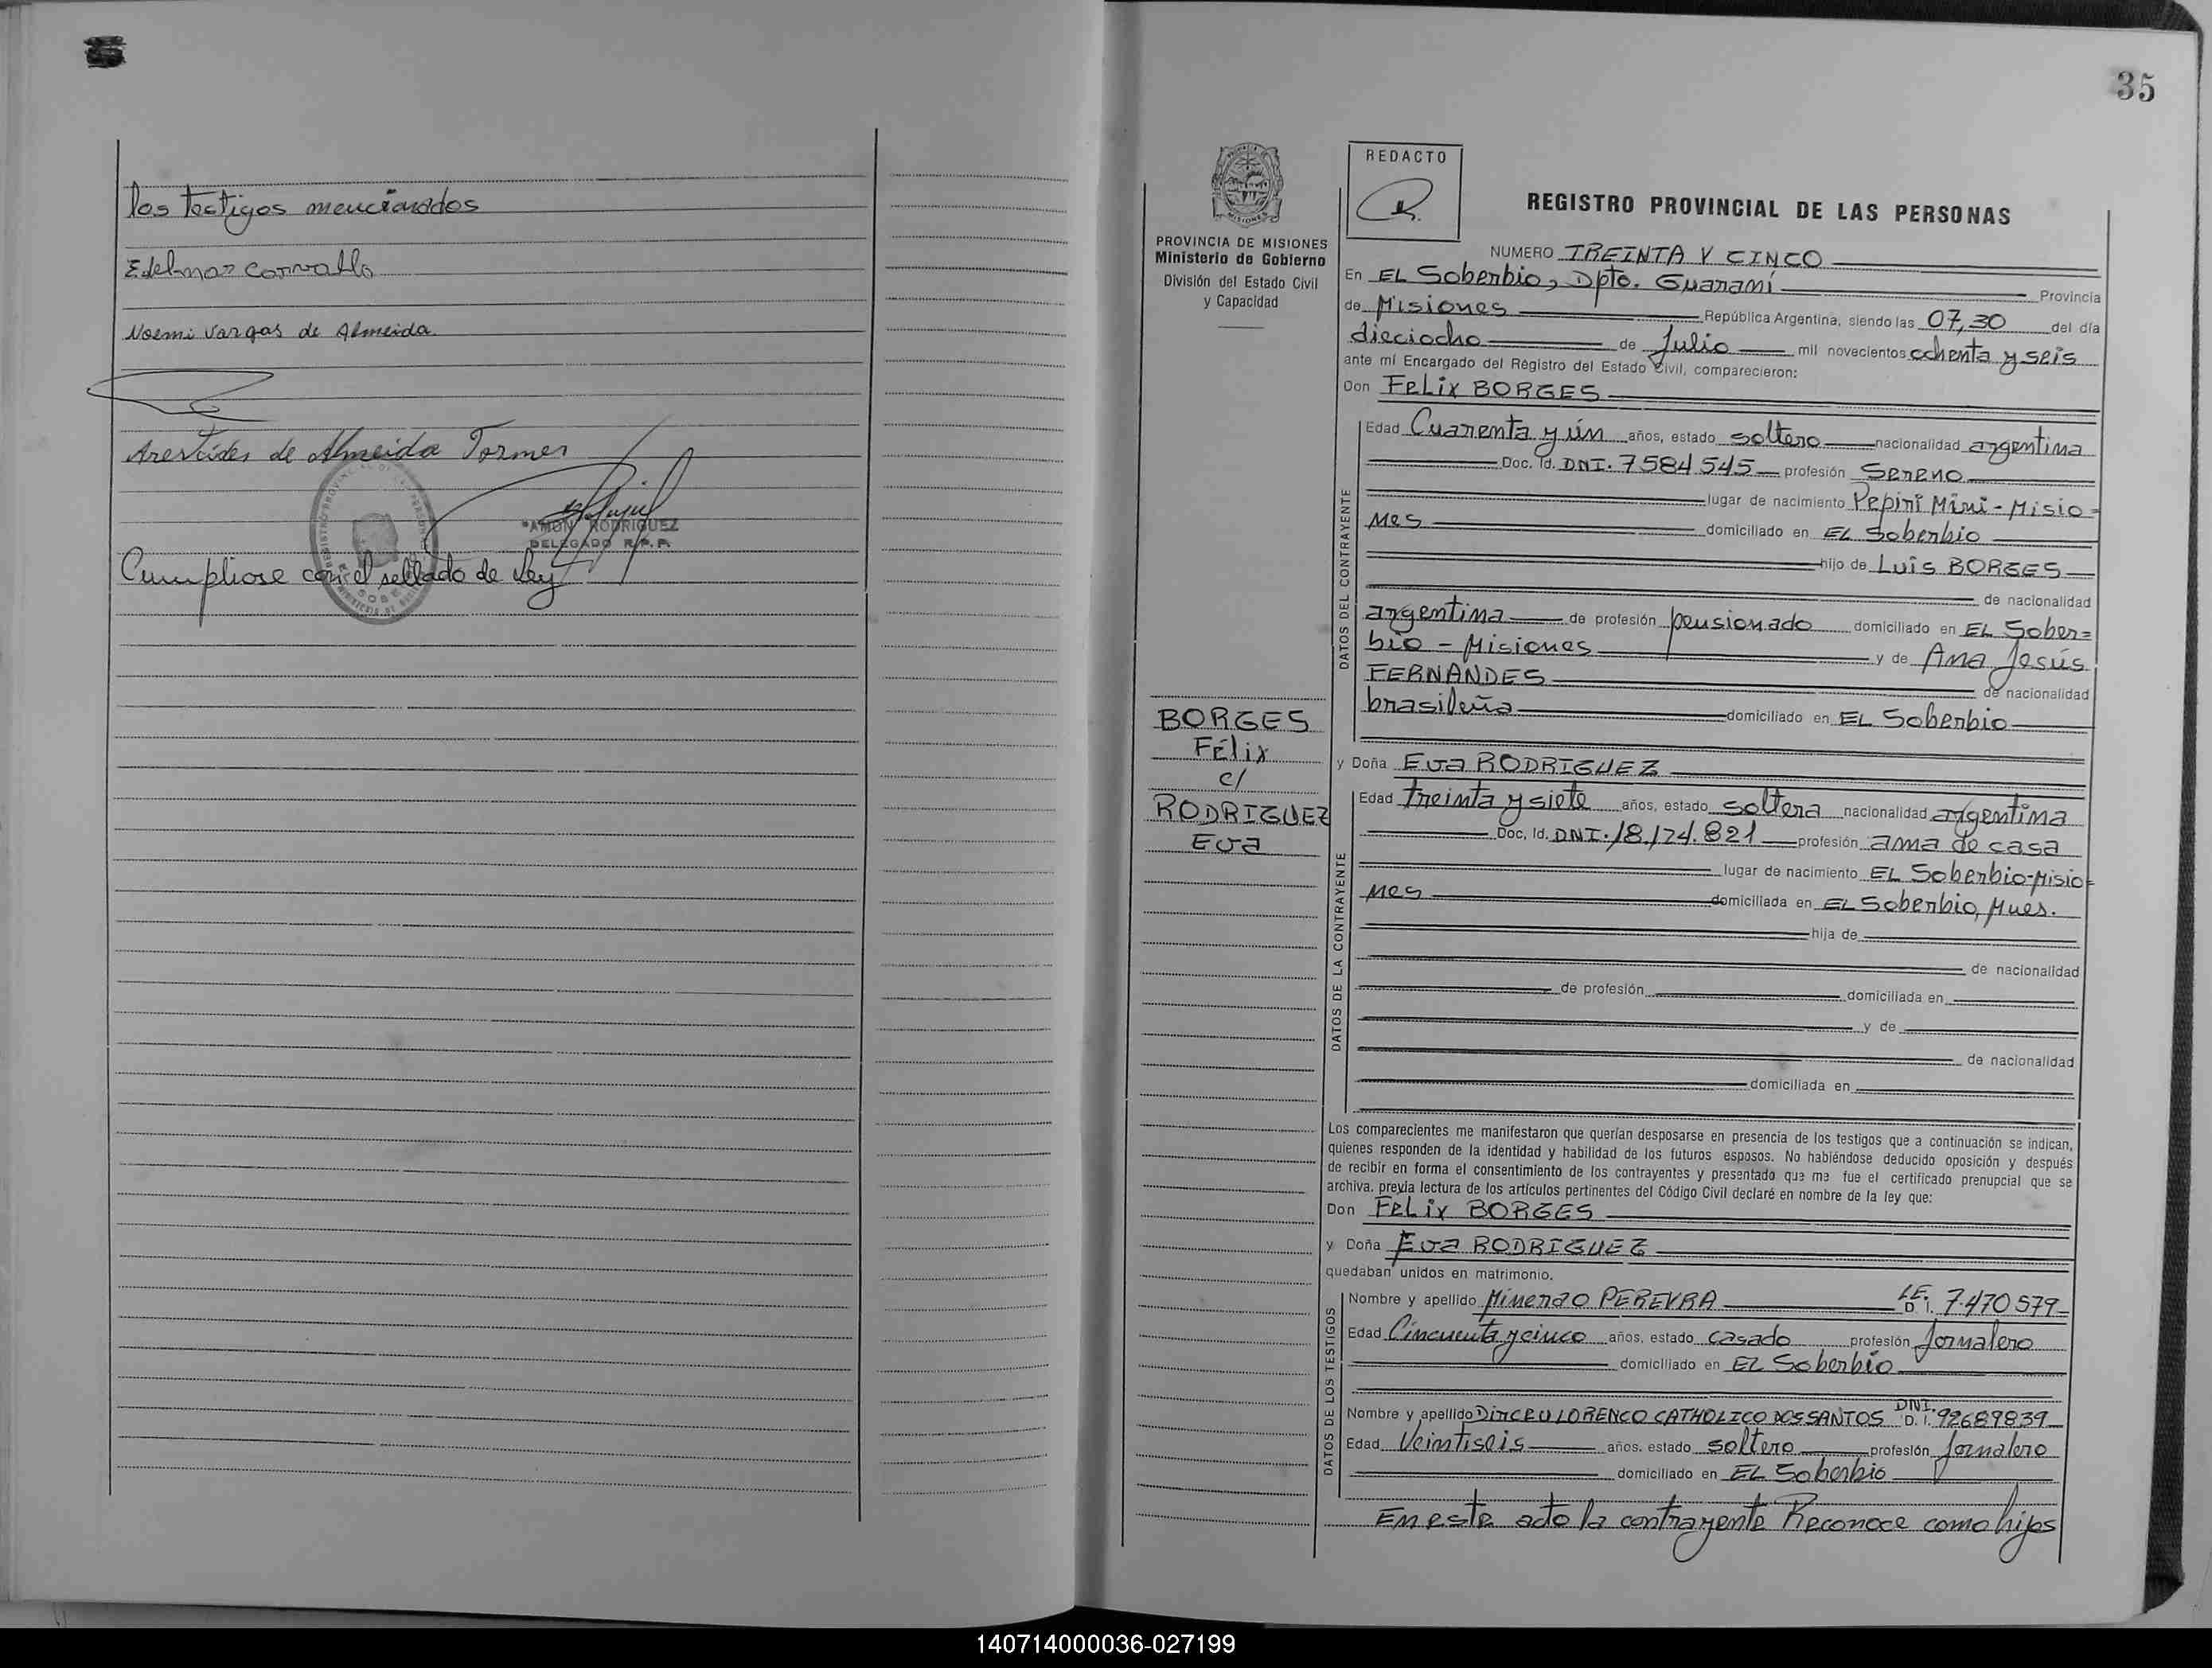 los testigos mencionados
Edelmar Carvallo
Noemi Vargas de Almeida
Arestides de Almeida Tormes
RAMON RODRIGUEZ
DELEGADO R.P.P.
Cumpliose con el sellado de ley
35
PROVINCIA DE MISIONES
Ministerio de Gobierno
División del Estado Civil
y Capacidad
BORGES
Félix
c/
RODRIGUEZ
Eva
REDACTO
REGISTRO PROVINCIAL DE LAS PERSONAS
NUMERO TREINTA Y CINCO
En EL Soberbio, Dpto. Guaraní Provincia
de Misiones República Argentina, siendo las 07,30 del día
dieciocho de Julio mil novecientos ochenta y seis
ante mí Encargado del Registro del Estado Civil, comparecieron:
Don FELix BORGES
DATOS DEL CONTRAYENTE
Edad Cuarenta y ún años, estado soltero nacionalidad argentina
Doc. Id. DNI. 7584545 profesión Sereno
lugar de nacimiento Pepirí Miní - Misio=
nes domiciliado en EL Soberbio
hijo de Luis BORGES
de nacionalidad
argentina de profesión pensionado domiciliado en EL Sober=
bio - Misiones y de Ana Jesús
FERNANDES de nacionalidad
brasileña domiciliado en EL Soberbio
y Doña Eva RODRIGUEZ
DATOS DE LA CONTRAYENTE
Edad treinta y siete años, estado soltera nacionalidad argentina
Doc. Id. DNI. 18.124.821 profesión ama de casa
lugar de nacimiento EL Soberbio-Misio=
nes domiciliada en EL Soberbio, Mnes.
hija de
de nacionalidad
de profesión domiciliada en
y de
de nacionalidad
domiciliada en
Los comparecientes me manifestaron que querían desposarse en presencia de los testigos que a continuación se indican,
quienes responden de la identidad y habilidad de los futuros esposos. No habiéndose deducido oposición y después
de recibir en forma el consentimiento de los contrayentes y presentado que me fue el certificado prenupcial que se
archiva, previa lectura de los artículos pertinentes del Código Civil declaré en nombre de la ley que:
Don FELix BORGES
y Doña Eva RODRIGUEZ
quedaban unidos en matrimonio.
DATOS DE LOS TESTIGOS
Nombre y apellido Minerao PEREYRA L.E. D.I. 7.470579
Edad Cincuenta y cinco años, estado casado profesión Jornalero
domiciliado en EL Soberbio
Nombre y apellido DirCEU LORENCO CATHOLICO DOS SANTOS DNI. D.I. 92689839
Edad Veintiseis años, estado soltero profesión jornalero
domiciliado en EL Soberbio
En este acto la contrayente Reconoce como hijos
140714000036-027199